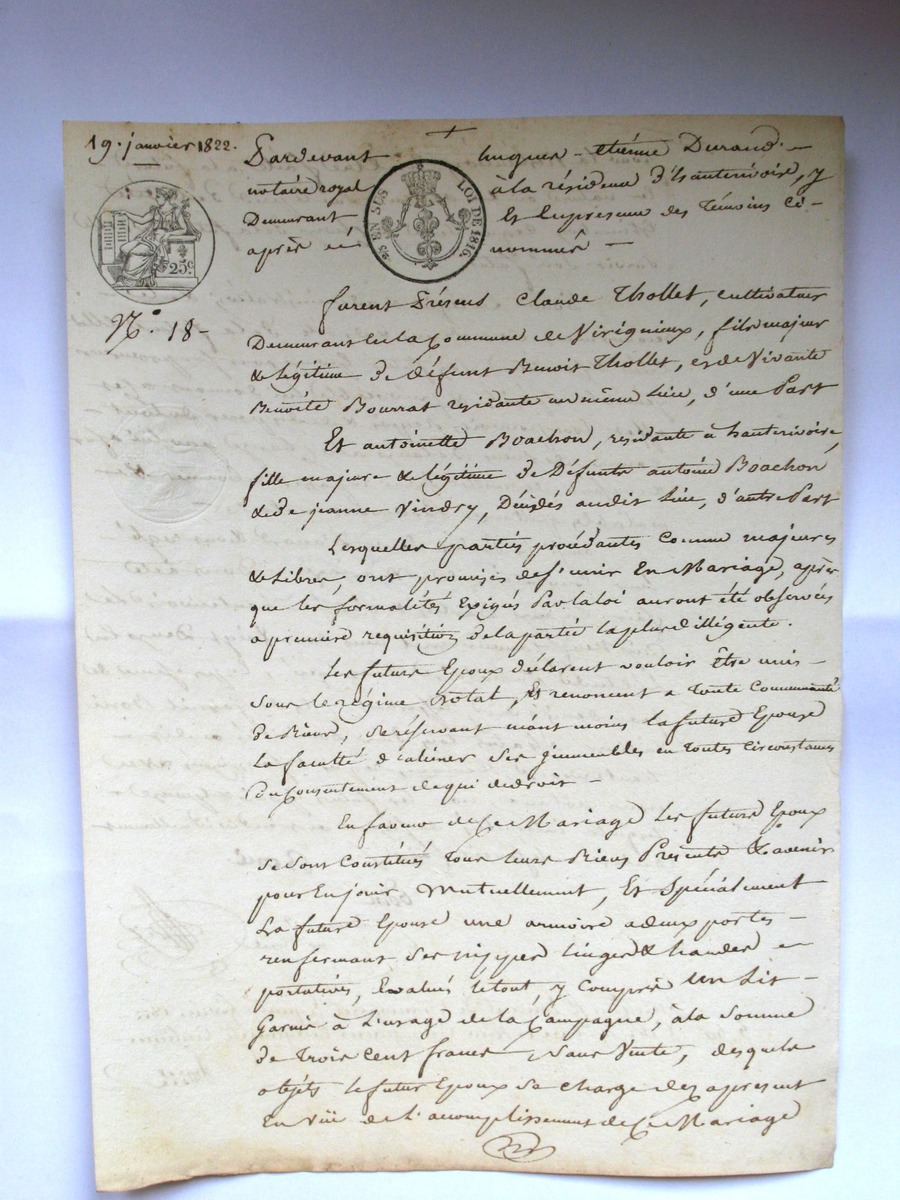 19. janvier 1822.
Pardevant hugues - étiénne Durand. -
notaire royal à la résidence d'hauterivoire, y
Demeurant Et Enpresence des Témoins Ci-
après nommés -
EN SUS LOI DE 1816.
25c
N.° 18 -
furent Présens Claude Thollet, cultivateur
Demeurant en la Commune de Virigneux, fils majeur
& légitime de défunt Benoit Thollet, et de Vivante
Benoîte Bourrat residante au même Lieu, d'une Part
Et antoinette Boachon, residante à hauterivoire,
fille majeure & légitime de Défunts antoine Boachon
& de jeanne Vindry, Décédés audit Lieu, d'autre Part
Lesquelles partiés procédantes Comme majeures
& Libres, ont promises de s'unir En Mariage, après
que les formalités Exigés Par la loi auront été observées
a premiere requisition de la partié la plus dilligente.
Les futurs Epoux déclarent vouloir être unis -
Sous le régime Dotal, Et renoncent a Toute Communauté
de Biens, se réservant néant moins la future Epouse
La faculté d'aliéner Ses jmmeubles en toutes circonstances
du Consentement de qui de droit -
En faveur de Ce Mariage Les futurs Epoux
se sont Constitués Tous leurs Biens Présents & avenir
pour En jouir Mutuellement, Et Spécialement
La future Epouse une armoire a deux portes -
renfermant Ses nippes linges & hardes -
portatives, Evalués le tout, y Compris Un Lit -
Garni à L'usage de la Campagne, à la Somme
de Trois Cent francs Sans Vente, desquels
objéts le futur Epoux Se charge dez apresent
En Vüe de L'accomplissement de Ce Mariage